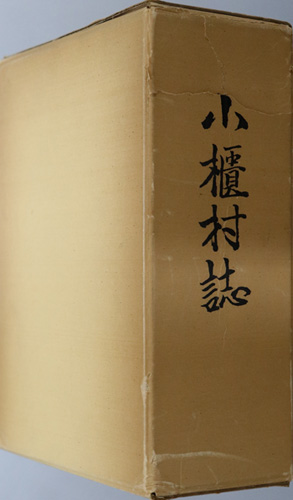 小櫃村誌